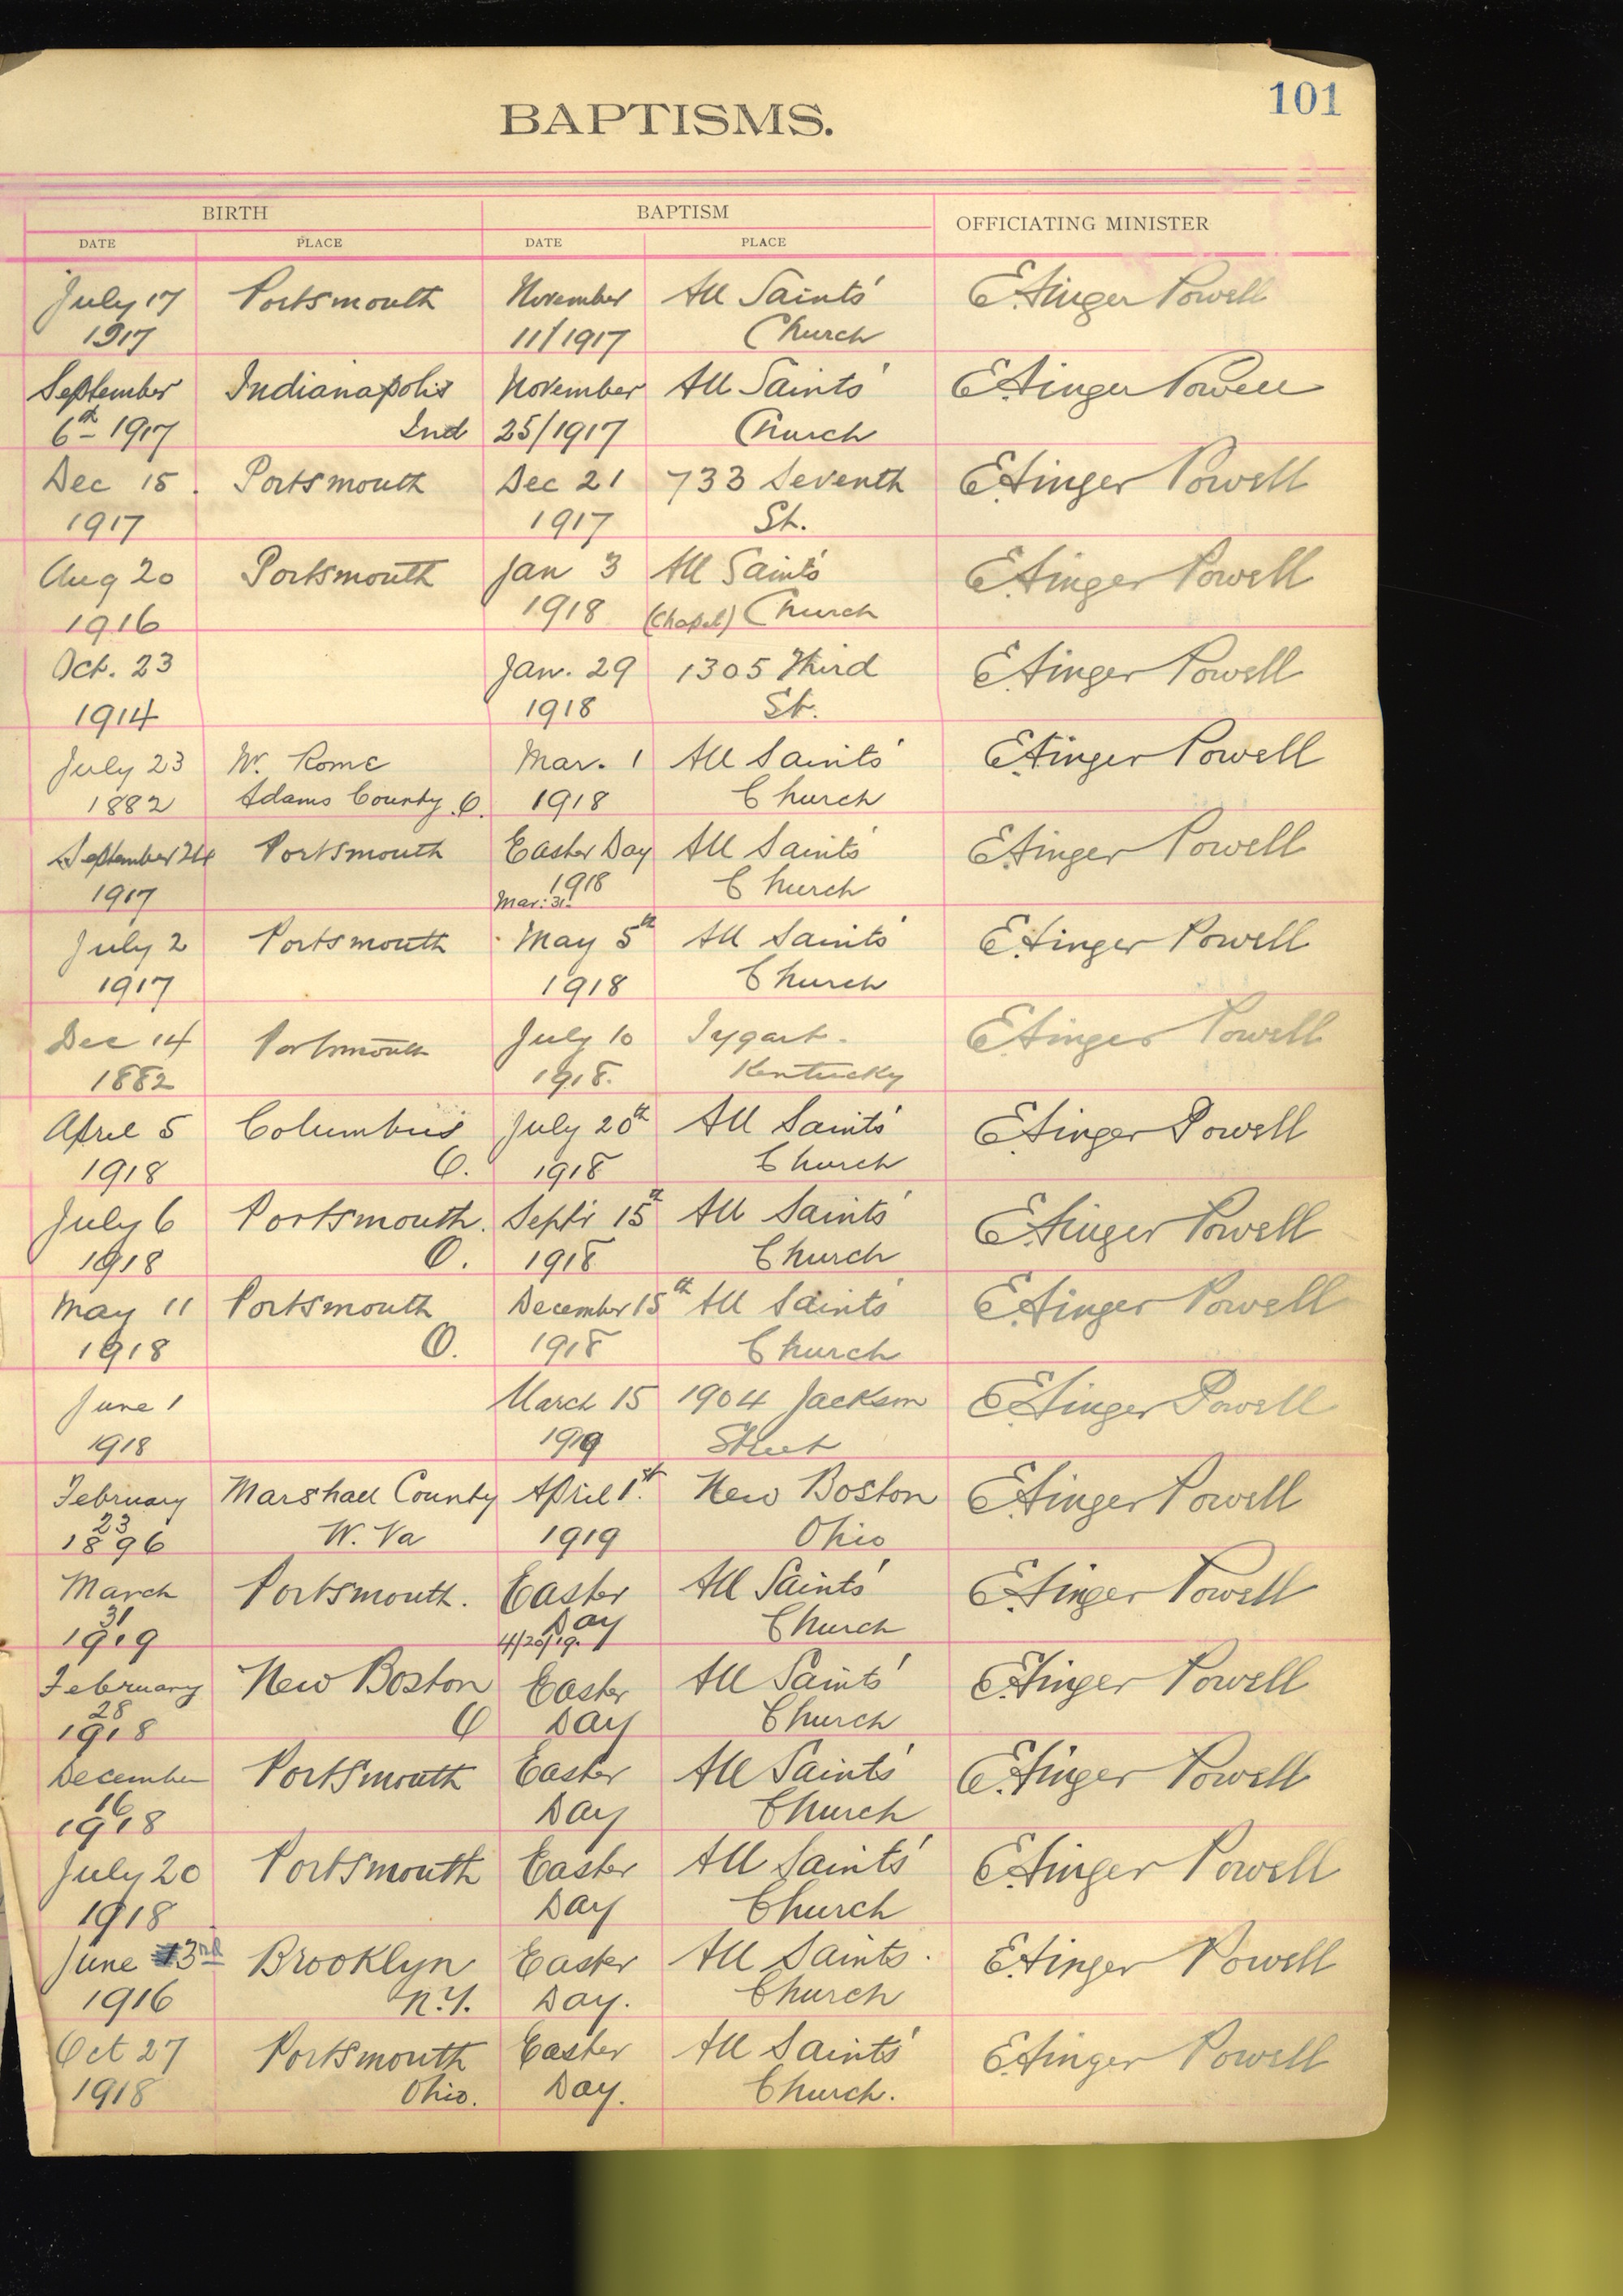 101
BAPTISMS.
BIRTH BAPTISM OFFICIATING MINISTER
DATE PLACE DATE PLACE
July 17 Portsmouth November All Saints' E Ainger Powell
1917 11/1917 Church
September Indianapolis November All Saints' E Ainger Powell
6th 1917 Ind 25/1917 Church
Dec 15. Portsmouth Dec 21 733 Seventh E Ainger Powell
1917 1917 St.
Aug 20 Portsmouth Jan 3 All Saints' E Ainger Powell
1916 1918 (Chapel) Church
Oct. 23 Jan. 29 1305 Third E Ainger Powell
1914 1918 St.
July 23 W. Rome Mar. 1 All Saints' E Ainger Powell
1882 Adams County. O. 1918 Church
September 24 Portsmouth Easter Day All Saints' E Ainger Powell
1917 1918 Church
Mar: 31.
July 2 Portsmouth May 5th All Saints' E Ainger Powell
1917 1918 Church
Dec 14 Portsmouth July 10 Tygart. E Ainger Powell
1882 1918. Kentucky
April 5 Columbus July 20th All Saints' E Ainger Powell
1918 O. 1918 Church
July 6 Portsmouth. Sept'r 15th All Saints' E Ainger Powell
1918 O. 1918 Church
May 11 Portsmouth December 15th All Saints' E Ainger Powell
1918 O. 1918 Church
June 1 March 15 1904 Jackson E Ainger Powell
1918 1919 Street
February Marshall County April 1st. New Boston E Ainger Powell
23
1896 W. Va 1919 Ohio
March Portsmouth. Easter All Saints' E Ainger Powell
31 Day Church
1919 4/20/19.
February New Boston Easter All Saints' E Ainger Powell
28
1918 O Day Church
December Portsmouth Easter All Saints' E Ainger Powell
16
1918 Day Church
July 20 Portsmouth Easter All Saints' E Ainger Powell
1918 Day Church
June 3rd Brooklyn Easter All Saints. E Ainger Powell
1916 N.Y. Day. Church
Oct 27 Portsmouth Easter All Saints' E Ainger Powell
1918 Ohio. Day. Church.